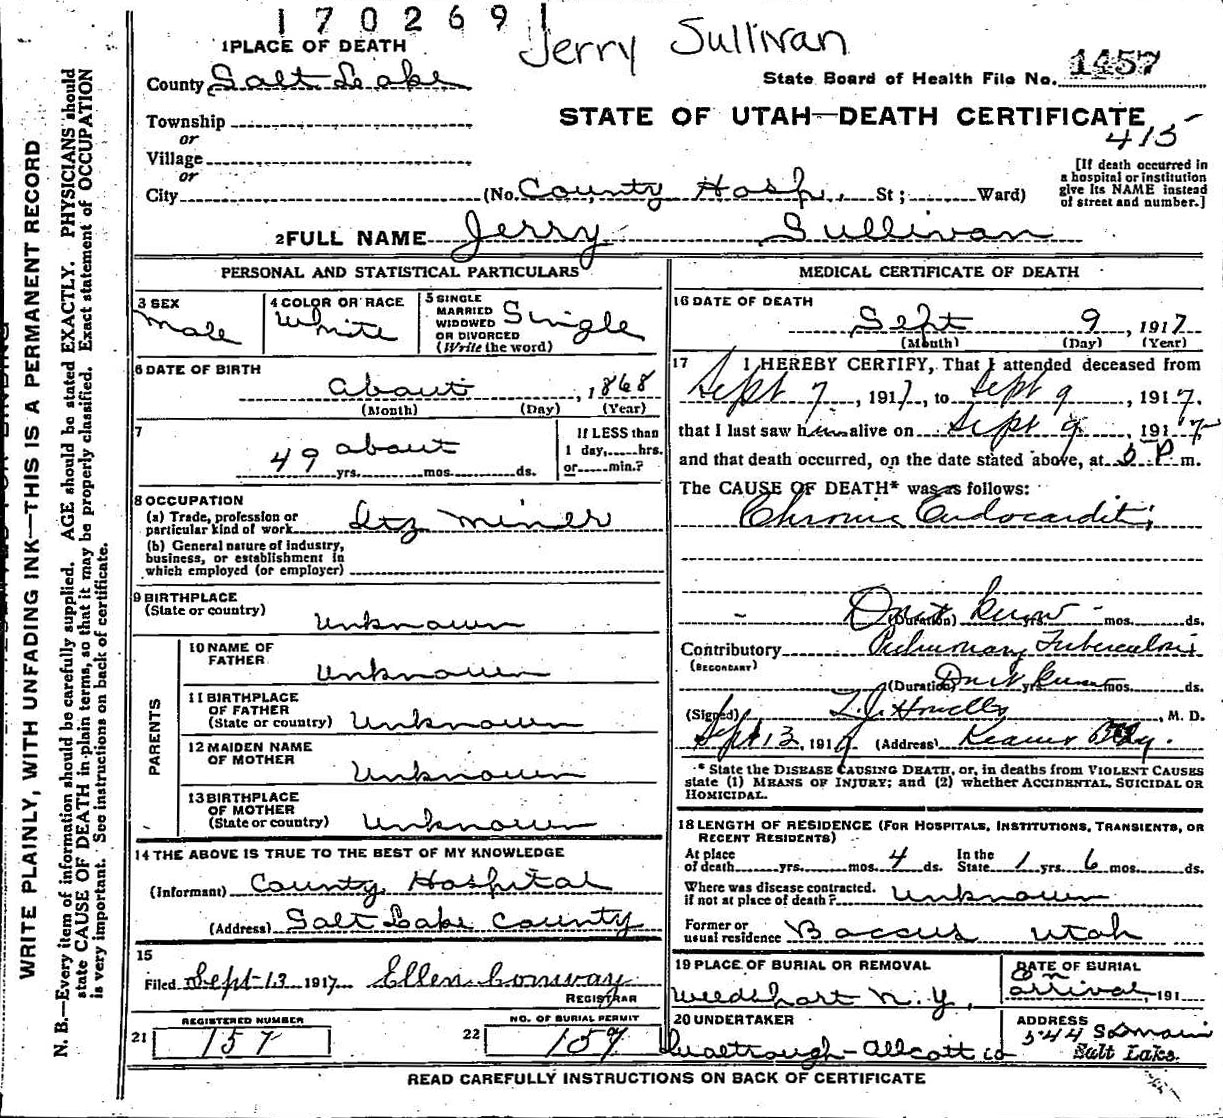 170269
Jerry Sullivan
1 PLACE OF DEATH
County Salt Lake
State Board of Health File No. 1457
Township
or
Village
or
STATE OF UTAH—DEATH CERTIFICATE
415
City (No. County Hosp., St; Ward)
[If death occurred in
a hospital or institution
give its NAME instead
of street and number.]
2 FULL NAME Jerry Sullivan
PERSONAL AND STATISTICAL PARTICULARS
3 SEX
Male
4 COLOR OR RACE
White
5 SINGLE
MARRIED
WIDOWED
OR DIVORCED
(Write the word)
Single
6 DATE OF BIRTH
about , 1868
(Month) (Day) (Year)
7
49 about yrs. mos. ds.
If LESS than
1 day, hrs.
or min.?
8 OCCUPATION
(a) Trade, profession or
particular kind of work miner
(b) General nature of industry,
business, or establishment in
which employed (or employer)
9 BIRTHPLACE
(State or country)
Unknown
PARENTS
10 NAME OF
FATHER
Unknown
11 BIRTHPLACE
OF FATHER
(State or country) Unknown
12 MAIDEN NAME
OF MOTHER
Unknown
13 BIRTHPLACE
OF MOTHER
(State or country) Unknown
14 THE ABOVE IS TRUE TO THE BEST OF MY KNOWLEDGE
(Informant) County Hospital
(Address) Salt Lake County
15
Filed Sept 13 1917 Ellen Conway
REGISTRAR
REGISTERED NUMBER
21 157
NO. OF BURIAL PERMIT
22 157
MEDICAL CERTIFICATE OF DEATH
16 DATE OF DEATH
Sept 9, 1917
(Month) (Day) (Year)
17 I HEREBY CERTIFY, That I attended deceased from
Sept 7, 1917, to Sept 9, 1917,
that I last saw him alive on Sept 9, 1917
and that death occurred, on the date stated above, at 5 P m.
The CAUSE OF DEATH* was as follows:
Chronic Endocarditis
Don't know
(Duration) yrs. mos. ds.
Contributory Pulmonary Tuberculosis
(SECONDARY)
(Duration) Don't know yrs. mos. ds.
(Signed) T. J. Howells, M. D.
Sept 13, 1917 (Address) Kearns Bldg.
* State the DISEASE CAUSING DEATH, or, in deaths from VIOLENT CAUSES
state (1) MEANS OF INJURY; and (2) whether ACCIDENTAL, SUICIDAL OR
HOMICIDAL.
18 LENGTH OF RESIDENCE (FOR HOSPITALS, INSTITUTIONS, TRANSIENTS, OR
RECENT RESIDENTS)
At place
of death yrs. mos. 4 ds.
In the
State 1 yrs. 6 mos. ds.
Where was disease contracted.
if not at place of death? Unknown
Former or
usual residence Baccus Utah
19 PLACE OF BURIAL OR REMOVAL
Weedshart N. Y,
DATE OF BURIAL
on
arrival, 191
20 UNDERTAKER
Gualtrough-Allcott co
ADDRESS
544 So main
Salt Lake.
READ CAREFULLY INSTRUCTIONS ON BACK OF CERTIFICATE
WRITE PLAINLY, WITH UNFADING INK—THIS IS A PERMANENT RECORD
N. B.—Every item of information should be carefully supplied. AGE should be stated EXACTLY. PHYSICIANS should
state CAUSE OF DEATH in plain terms, so that it may be properly classified. Exact statement of OCCUPATION
is very important. See instructions on back of certificate.